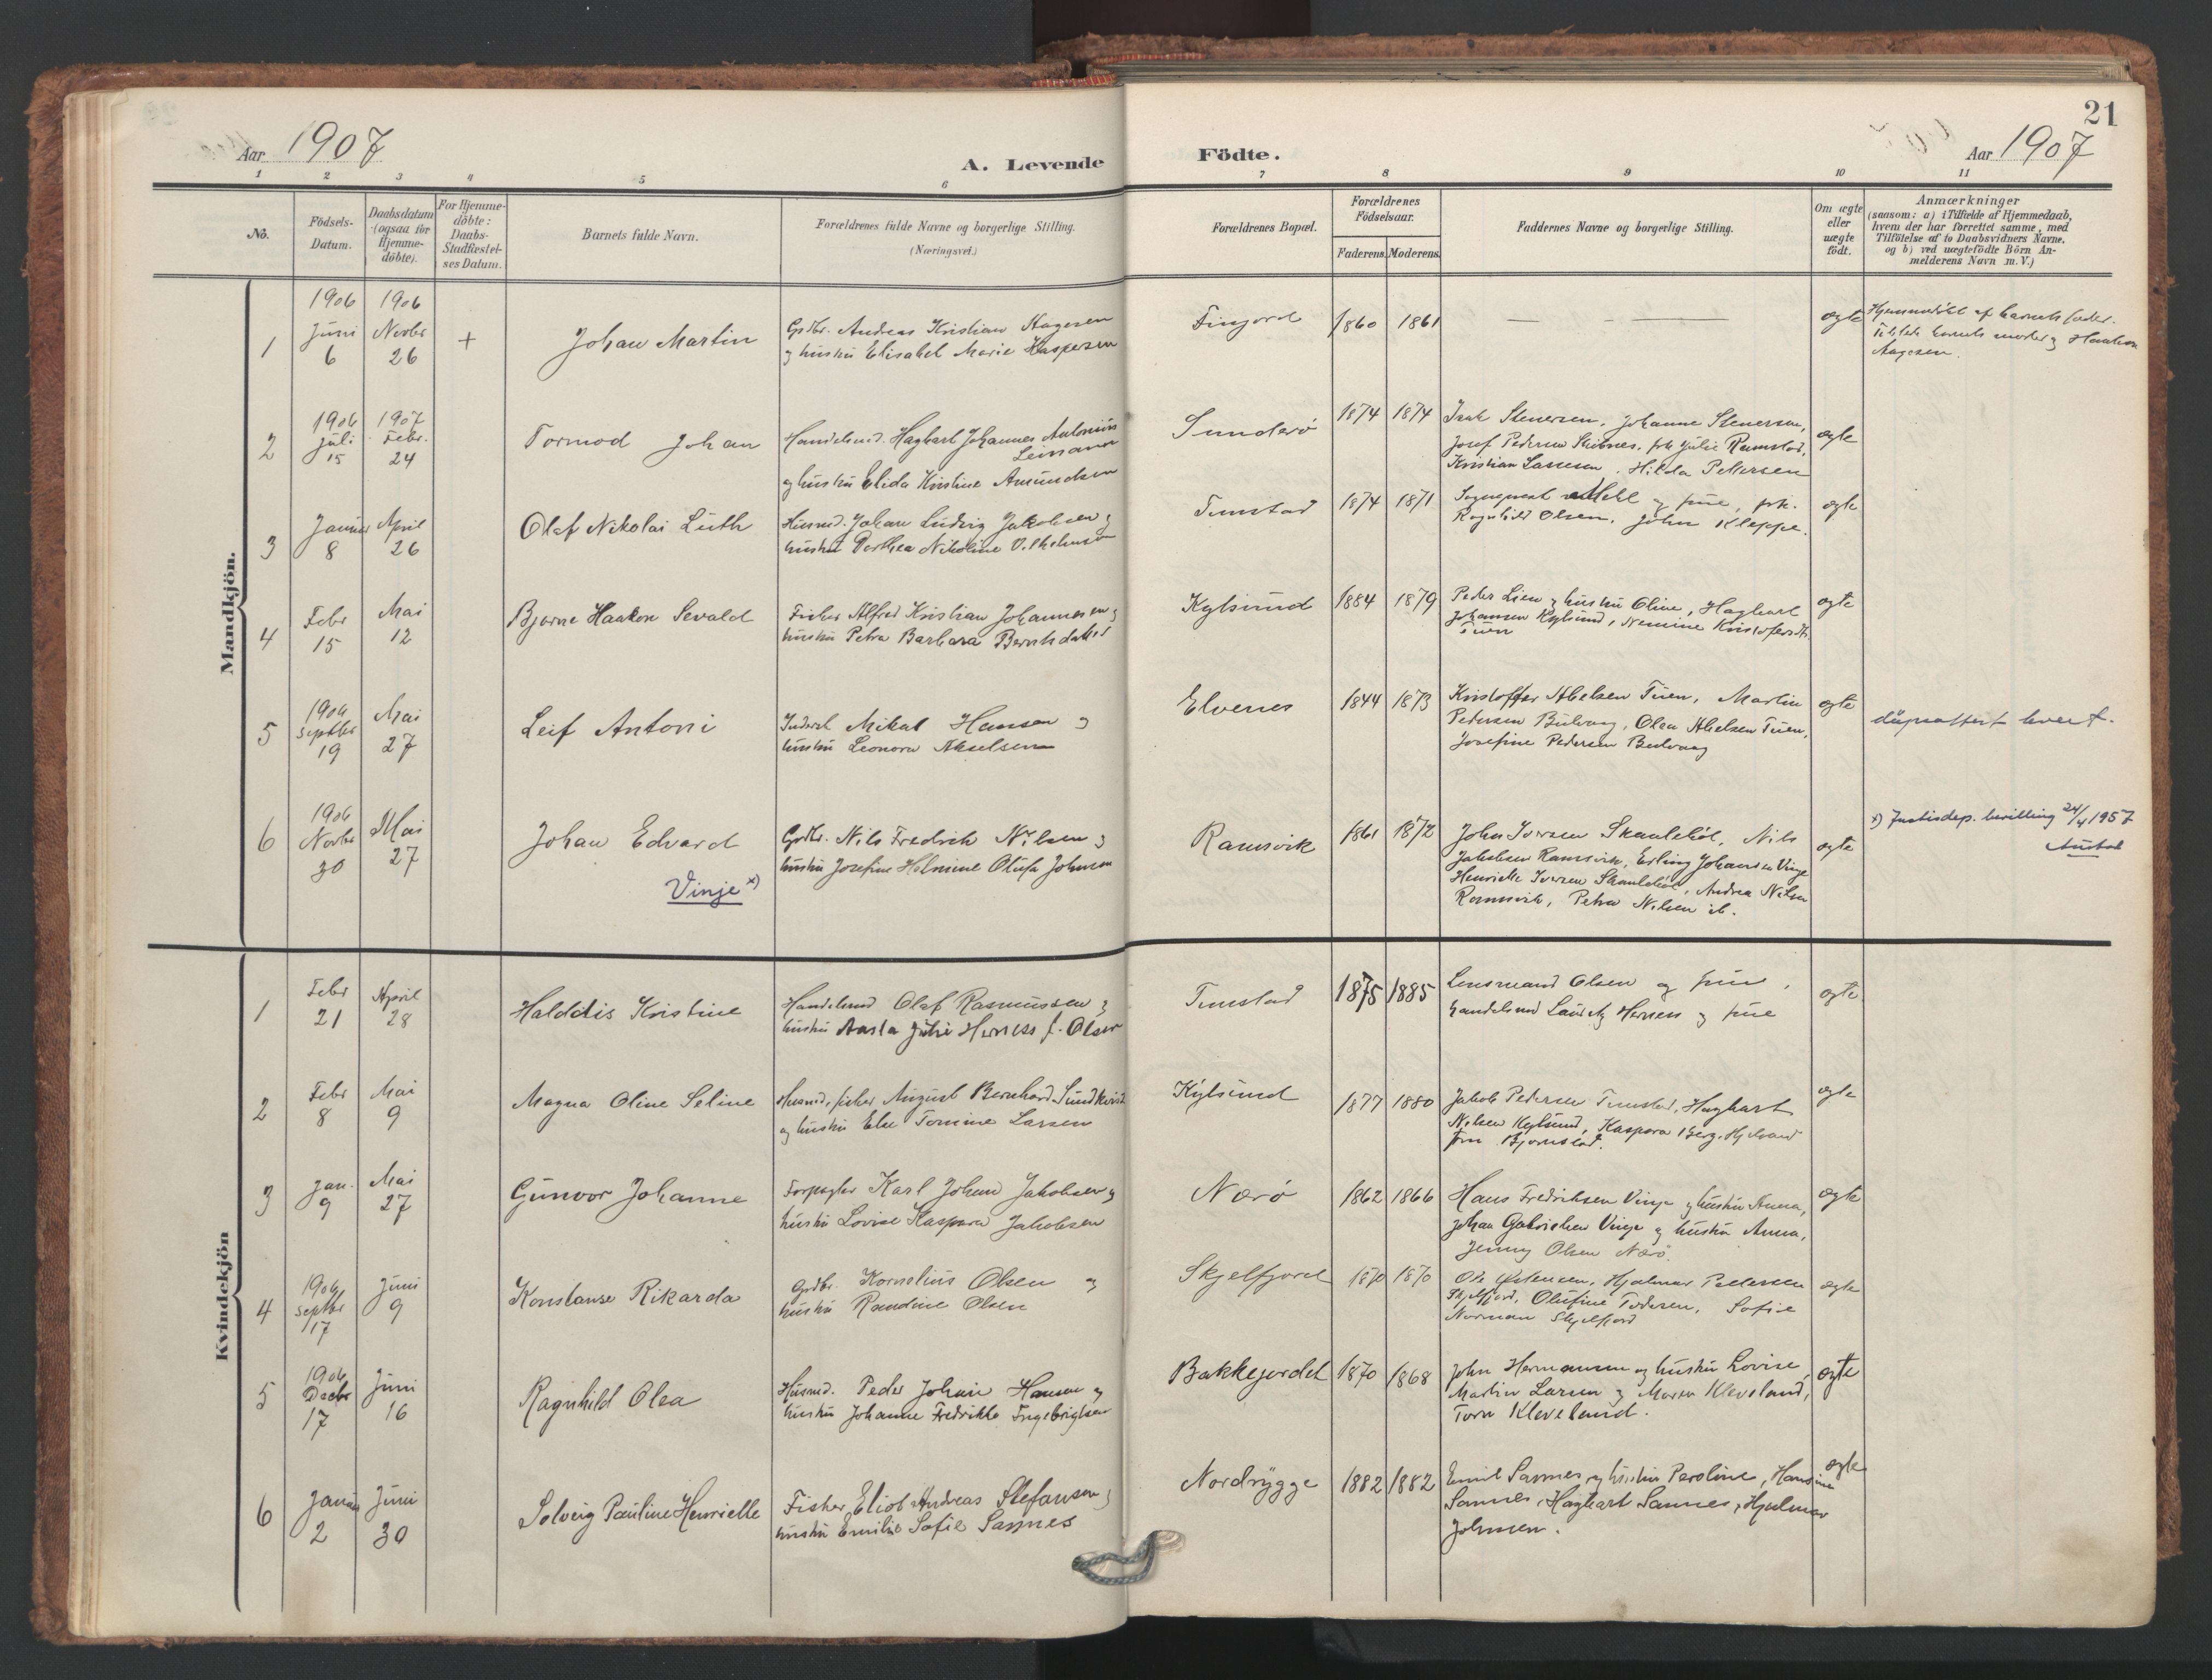 21
Aar 1907
A. Levende
Födte.
Aar 1907
1 2 3 4 5 6 7 8 9 10 11
No.
Födsels-
Datum.
Daabsdatum
(ogsaa for
Hjemme-
döbte).
For Hjemme-
döbte:
Daabs-
Stadfæstel-
ses Datum.
Barnets fulde Navn.
Forældrenes fulde Navne og borgerlige Stilling.
(Næringsvei.)
Forældrenes Bopæl.
Forældrenes
Födselsaar.
Faderens. Moderens.
Faddernes Navne og borgerlige Stilling.
Om ægte
eller
uægte
födt.
Anmærkninger
(saasom: a) i Tilfælde af Hjemmedaab,
hvem der har forrettet samme, med
Tilföielse af to Daabsvidners Navne,
og b) ved uægtefödte Börn An-
melderens Navn m. V.)
Mandkjön.
1
1906
Juni
6
1906
Novbr
26
+
Johan Martin
Grdbr. Andreas Kristian Aagesen
og hustru Elisabet Marie Kaspersen
Finjord
1860 1861
ægte
Hjemmedøbt af barnets fader.
barnets moder og Haakon
Aagesen.
2
1906
Juli
15
1907
Febr.
24
Tormod Johan
Handelsmd. Hagbart Johannes Antonius
og hustru Elida Kristine Amundsen
Sunderø
1874 1874
Isak Stenersen, Johanne Stenersen,
Josef Pedersen, frk Julie Ramstad,
Kristian Lassesen, Hilda Pettersen
ægte
3
Januar
8
April
26
Olaf Nikolai Luth
Husmd. Johan Ludvig Jakobsen og
hustru Dorthea Nikoline Vilhelmsen
Tunstad
1874 1871
og frue, frk.
Ragnhild Olsen, John Kleppe.
ægte
4
Febr
15
Mai
12
Bjarne Haakon Sevald
Fisker Alfred Kristian Johannesen og
hustru Petra Barbara Berntsdatter
Kylsund
1884 1879
Peder Lien og hustru Oline, Hagbart
Johansen Kylsund, Nemine
Tuen
ægte
5
1906
Septbr
19
Mai
27
Leif Antoni
Inderst Mikal Hansen og
hustru Leonora Akselsen
Elvenes
1844 1873
Kristoffer Abelsen Tuen, Martin
Pedersen Bulvaag, Olea Abelsen Tuen,
Josefine Pedersen Bulvaag
ægte
dåpsattest levert.
6
1906
Novbr
30
Mai
27
Johan Edvard
Vinje x)
Grdbr. Nils Fredrik Nilsen og
hustru Josefine Helmine Olufa Johnsen
Ramsvik
1861 1872
John Iversen Skaulebøl, Nils
Jakobsen Ramsvik, Erling Johansen Vinje
Henriette Iversen Skaulebøl, Andrea Nilsen
Ramsvik, Petra Nilsen ib.
ægte
x) Justisdep. bevilling 24/4 1957
Kvindekjön
1
Febr
21
April
28
Halddis Kristine
Handelsmd Olaf Rasmussen og
hustru Aasta Julie Herness f. Olsen
Tunstad
1875 1885
Lensmand Olsen og frue,
handelsmd Lauritz Herness og frue
ægte
2
Febr
8
Mai
9
Magna Oline Seline
Husmd, fisker August Bernhard Sundkvist
og hustru Else Tomine Larsen
Kylsund
1877 1880
Jakob Pedersen Tunstad, Hagbart
Nilsen Kylsund, Kaspara Berg,
fru Bjørnstad.
ægte
3
Jan.
9
Mai
27
Gunvor Johanne
Forpagter Karl Johan Jakobsen og
hustru Lovise Kaspara Jakobsen
Nærø
1862 1866
Hans Fredriksen Vinje og hustru Anna,
Johan Gabrielsen Vinje og hustru Anna,
Jenny Olsen Nærø.
ægte
4
1906
Septbr
17
Juni
9
Konstanse Rikarda
Grdbr. Kornelius Olsen og
hustru Randine Olsen
Skjelfjord
1870 1870
Ole Hjalmar Pettersen
Skjelfjord, Olufine Pedersen, Sofie
Norman Skjelfjord
ægte
5
1906
Decbr
17
Juni
16
Ragnhild Olea
Husmd. Peder Johan Hansen og
hustru Johanne Fredrikke Ingebrigtsen
Bakkejordet
1870 1868
John Hermansen og hustru Lovise,
Martin Larsen og Maren Kleveland,
Tora Kleveland.
ægte
6
Januar
2
Juni
30
Solveig Pauline Henriette
Fisker Eliot Andreas Stefansen og
hustru Emilie Sofie Sannes
Nordrygge
1882 1882
Emil Sannes og hustru Peroline, Hansine
Sannes, Hagbart Sannes, Hjalmar
Johnsen.
ægte